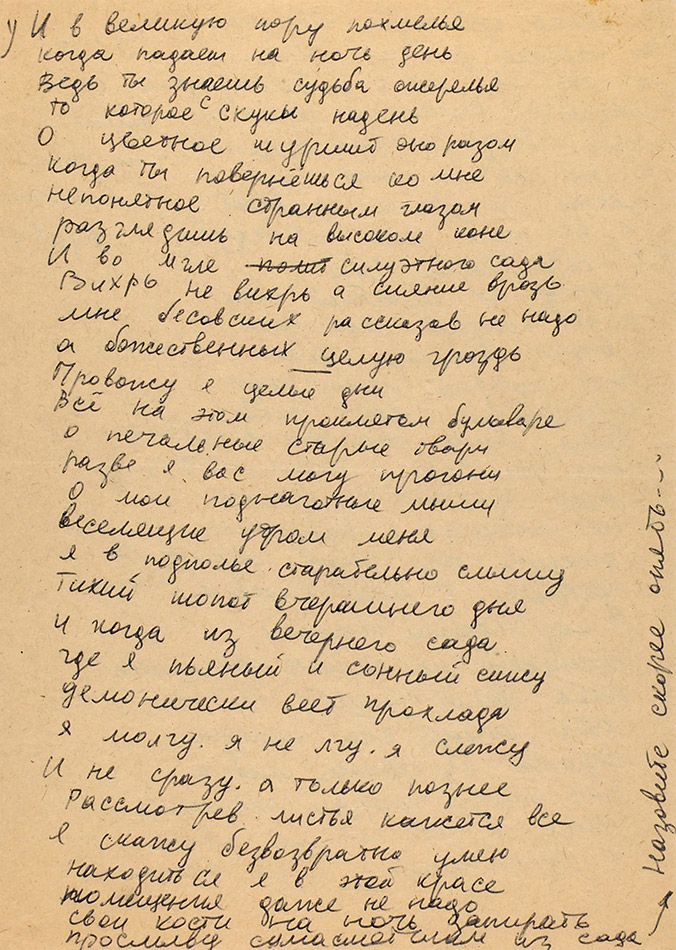 И в великую пору похмелья
когда падает на ночь день
Ведь ты знаешь судьба ожерелья
то которое с скуки надень
О цветное шуршит оно разом
когда ты повернёшься ко мне
непонятное странным глазом
разглядишь на высоком коне
И во мгле силуэтного сада
Вихрь не вихрь а сияние врозь
мне бесовских рассказов не надо
а божественных целую гроздь
Провожу я целые дни
Всё на этом проклятом бульваре
о печальные старые твари
разве я вас могу прогони
О мои подногатные мыши
веселящие утром меня
я в подполье старательно слышу
тихий шопот вчерашнего дня
и когда из вечернего сада
где я пьяный и сонный сижу
демонически веет прохлада
я молчу. я не лгу. я слежу
И не сразу. а только позднее
Рассмотрев листья кажется все
Я скажу безвозвратно умею
находиться я в этой красе
помещения даже не надо
свои кости на ночь запирать
прослыву сумасшедшим из сада
Назовите скорее опять...